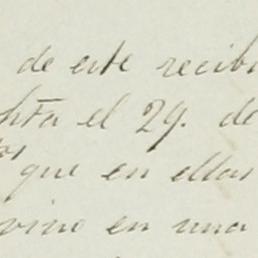 de este recibi
hta el 29. de
que en ellas
vino en una